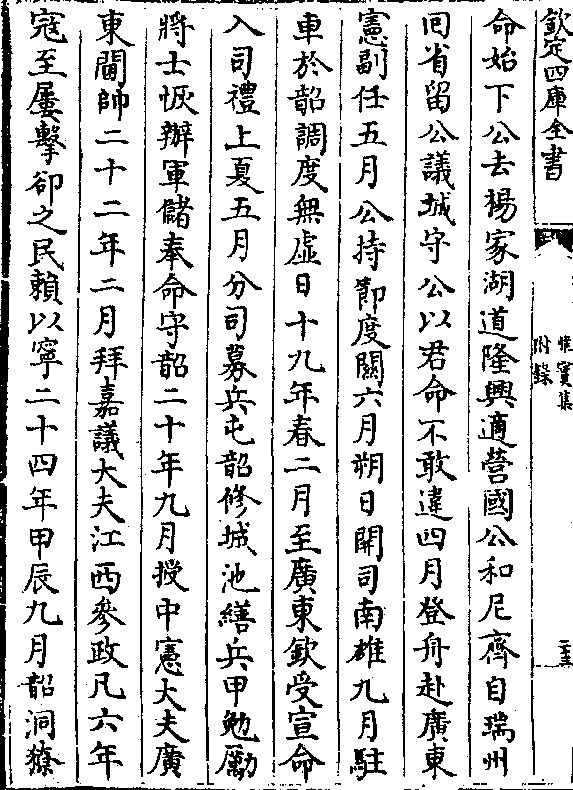 欽定四庫全書
惟實集
附錄
命始下公去楊家湖道隆興適營國公和尼齊自瑞州
回省留公議城守公以君命不敢違四月登舟赴廣東
憲副任五月公持節度關六月朔日開司南雄九月駐
車於韶調度無虛日十九年春二月至廣東欽受宣命
入司禮上夏五月分司募兵屯韶修城池繕兵甲勉勵
將士恢辦軍儲奉命守韶二十年九月授中憲大夫廣
東閫帥二十二年二月拜嘉議大夫江西參政凡六年
寇至屢擊卻之民賴以寧二十四年甲辰九月韶洞獠